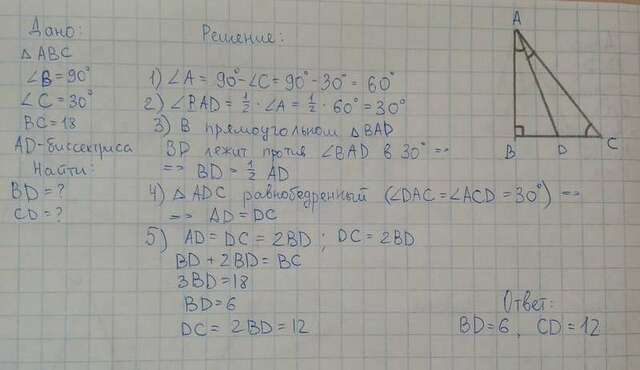 Дано:
△ ABC
∠B = 90°
∠C = 30°
BC = 18
AD - биссектриса
Найти:
BD = ?
CD = ?
Решение:
1) ∠A = 90° - ∠C = 90° - 30° = 60°
2) ∠BAD = 1/2 · ∠A = 1/2 · 60° = 30°
3) В прямоугольном △BAD
BD лежит против ∠BAD в 30° =>
=> BD = 1/2 AD
4) △ ADC равнобедренный (∠DAC = ∠ACD = 30°) =>
=> AD = DC
5) AD = DC = 2BD ; DC = 2BD
BD + 2BD = BC
3BD = 18
BD = 6
DC = 2BD = 12
A
B D C
Ответ:
BD = 6, CD = 12